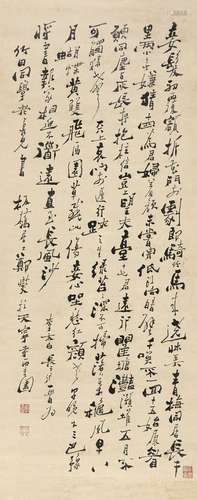 妾髮初覆額折花門前劇郎騎竹馬來遶床弄青梅同居長干
里兩小無嫌猜十四為君婦羞顏未嘗開低頭向暗壁千喚不一回十五始展眉
願同塵與灰長存抱柱信豈上望夫臺十六君遠行瞿塘灩澦堆五月不
可觸猿聲天上哀門前遲行跡一一生綠苔苔深不能掃落葉秋風早八
月胡蝶黃雙飛西園草感此傷妾心坐愁紅顏老早晚下三巴預
將書報家相迎不道遠直至長風沙
板橋鄭燮